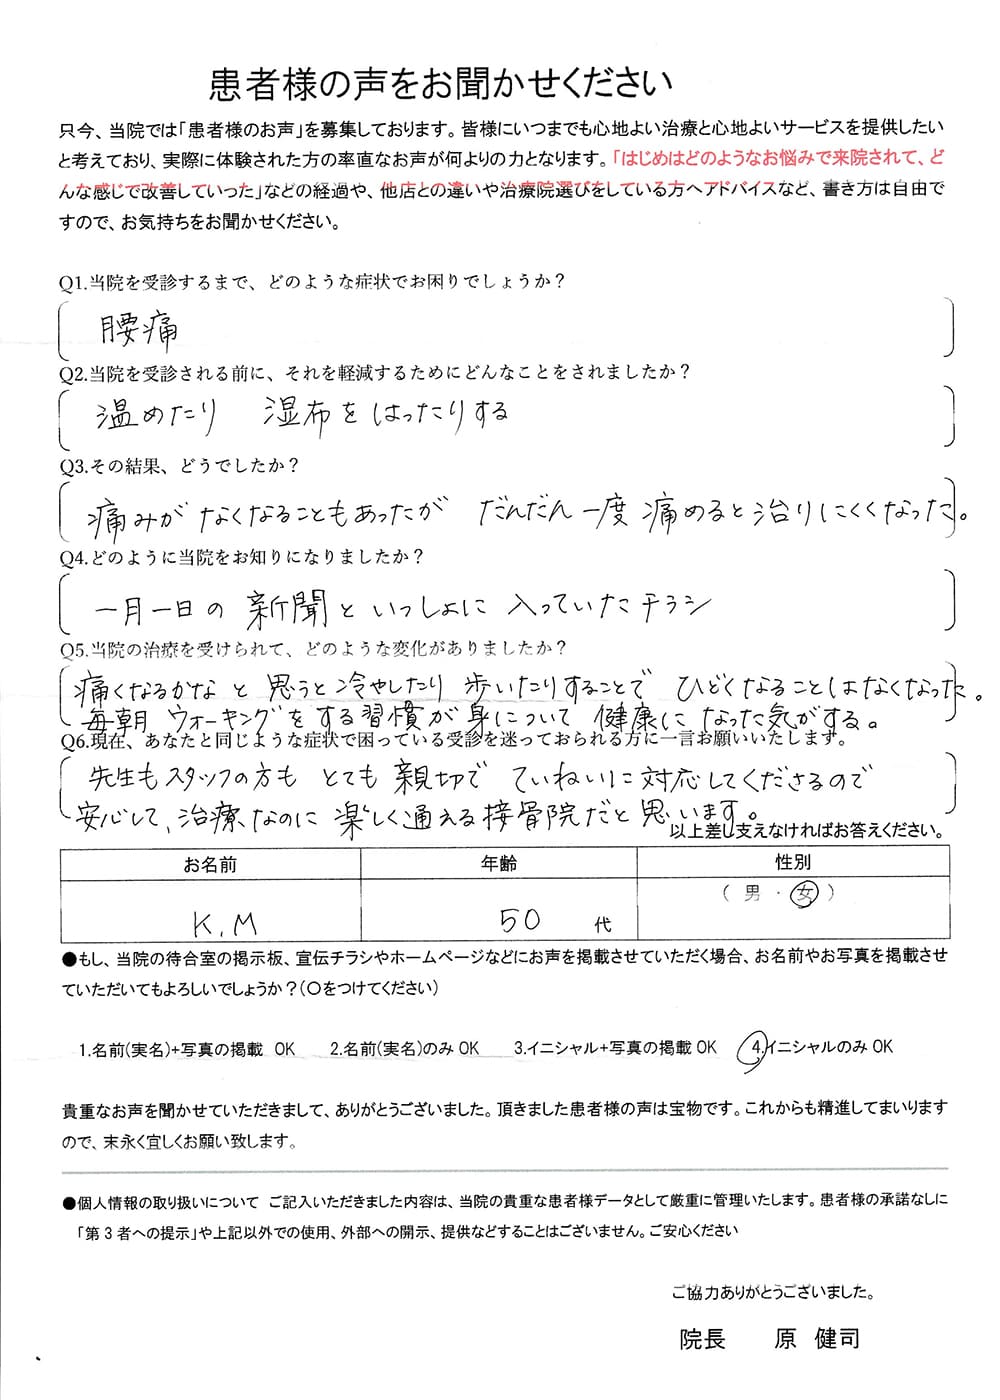 患者様の声をお聞かせください
只今、当院では「患者様のお声」を募集しております。皆様にいつまでも心地よい治療と心地よいサービスを提供したい
と考えており、実際に体験された方の率直なお声が何よりの力となります。「はじめはどのようなお悩みで来院されて、ど
んな感じで改善していった」などの経過や、他店との違いや治療院選びをしている方へアドバイスなど、書き方は自由で
すので、お気持ちをお聞かせください。
Q1.当院を受診するまで、どのような症状でお困りでしょうか？
腰痛
Q2.当院を受診される前に、それを軽減するためにどんなことをされましたか？
温めたり 湿布をはったりする
Q3.その結果、どうでしたか？
痛みがなくなることもあったが だんだん一度痛めると治りにくくなった。
Q4.どのように当院をお知りになりましたか？
一月一日の新聞といっしょに入っていたチラシ
Q5.当院の治療を受けられて、どのような変化がありましたか？
痛くなるかなと思うと冷やしたり歩いたりすることでひどくなることはなくなった。
毎朝ウォーキングをする習慣が身について健康になった気がする。
Q6.現在、あなたと同じような症状で困っている受診を迷っておられる方に一言お願いいたします。
先生もスタッフの方もとても親切でていねいに対応してくださるので
安心して、治療なのに楽しく通える接骨院だと思います。
以上差し支えなければお答えください。
お名前 年齢 性別
（ 男 ・ 女 ）
K.M 50 代
●もし、当院の待合室の掲示板、宣伝チラシやホームページなどにお声を掲載させていただく場合、お名前やお写真を掲載させ
ていただいてもよろしいでしょうか？（○をつけてください）
1.名前(実名)+写真の掲載 OK 2.名前(実名)のみ OK 3.イニシャル+写真の掲載 OK 4.イニシャルのみ OK
貴重なお声を聞かせていただきまして、ありがとうございました。頂きました患者様の声は宝物です。これからも精進してまいります
ので、末永く宜しくお願い致します。
●個人情報の取り扱いについて ご記入いただきました内容は、当院の貴重な患者様データとして厳重に管理いたします。患者様の承諾なしに
「第3者への提示」や上記以外での使用、外部への開示、提供などすることはございません。ご安心ください
ご協力ありがとうございました。
院長 原 健司